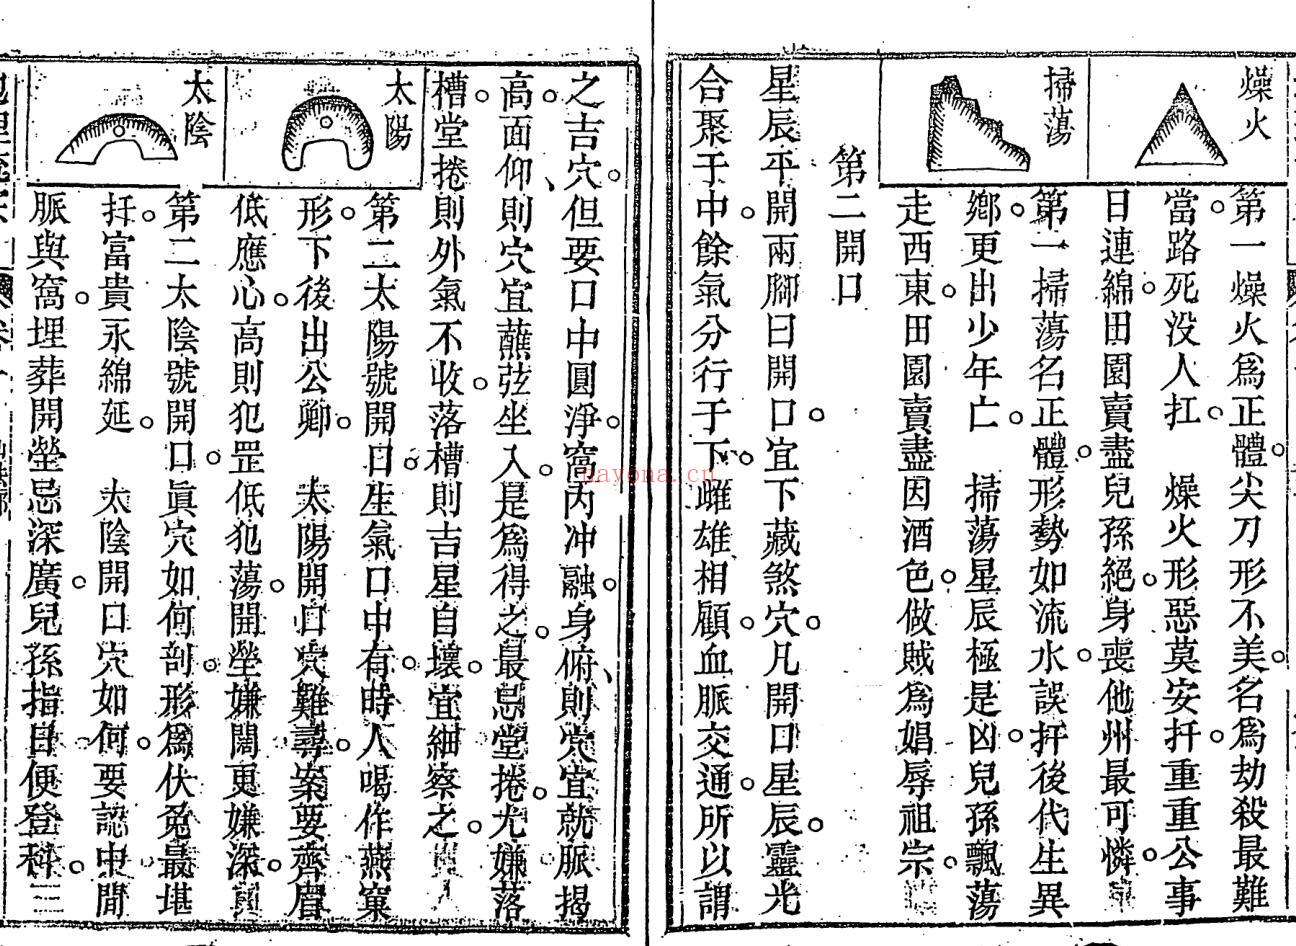 燥火
第一燥火爲正體尖刀形不美名爲劫殺最難
當路死没人扛　燥火形惡莫安扦重重公事
日連綿田園賣盡兒孫絕身喪他州最可憐
掃蕩
第一掃蕩名正體形勢如流水誤扦後代生異
鄉更出少年亡　掃蕩星辰極是凶兒孫飄蕩
走西東田園賣盡因酒色做賊爲娼辱祖宗
第二開口
星辰平開兩腳曰開口宜下藏煞穴凡開口星辰靈光
合聚于中餘氣分行于下雌雄相顧血脈交通所以謂
之吉穴但要口中圓淨窩内冲融身俯則穴宜就脈揭
高面仰則穴宜蘸弦坐入是爲得之最忌堂捲尤嫌落
槽堂捲則外氣不收落槽則吉星自壞宜細察之
太陽
第二太陽號開口生氣口中有時人喝作燕窠
形下後出公卿　太陽開口穴難尋案要齊眉
低應心高則犯罡低犯蕩開塋嫌闊更嫌深
太陰
第二太陰號開口眞穴如何剖形爲伏兔最堪
扦富貴永綿延　太陰開口穴如何要認中間
脈與窩埋葬開塋忌深廣兒孫指日便登科
三
nayona.cn